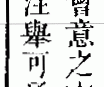 會意之
注舉可